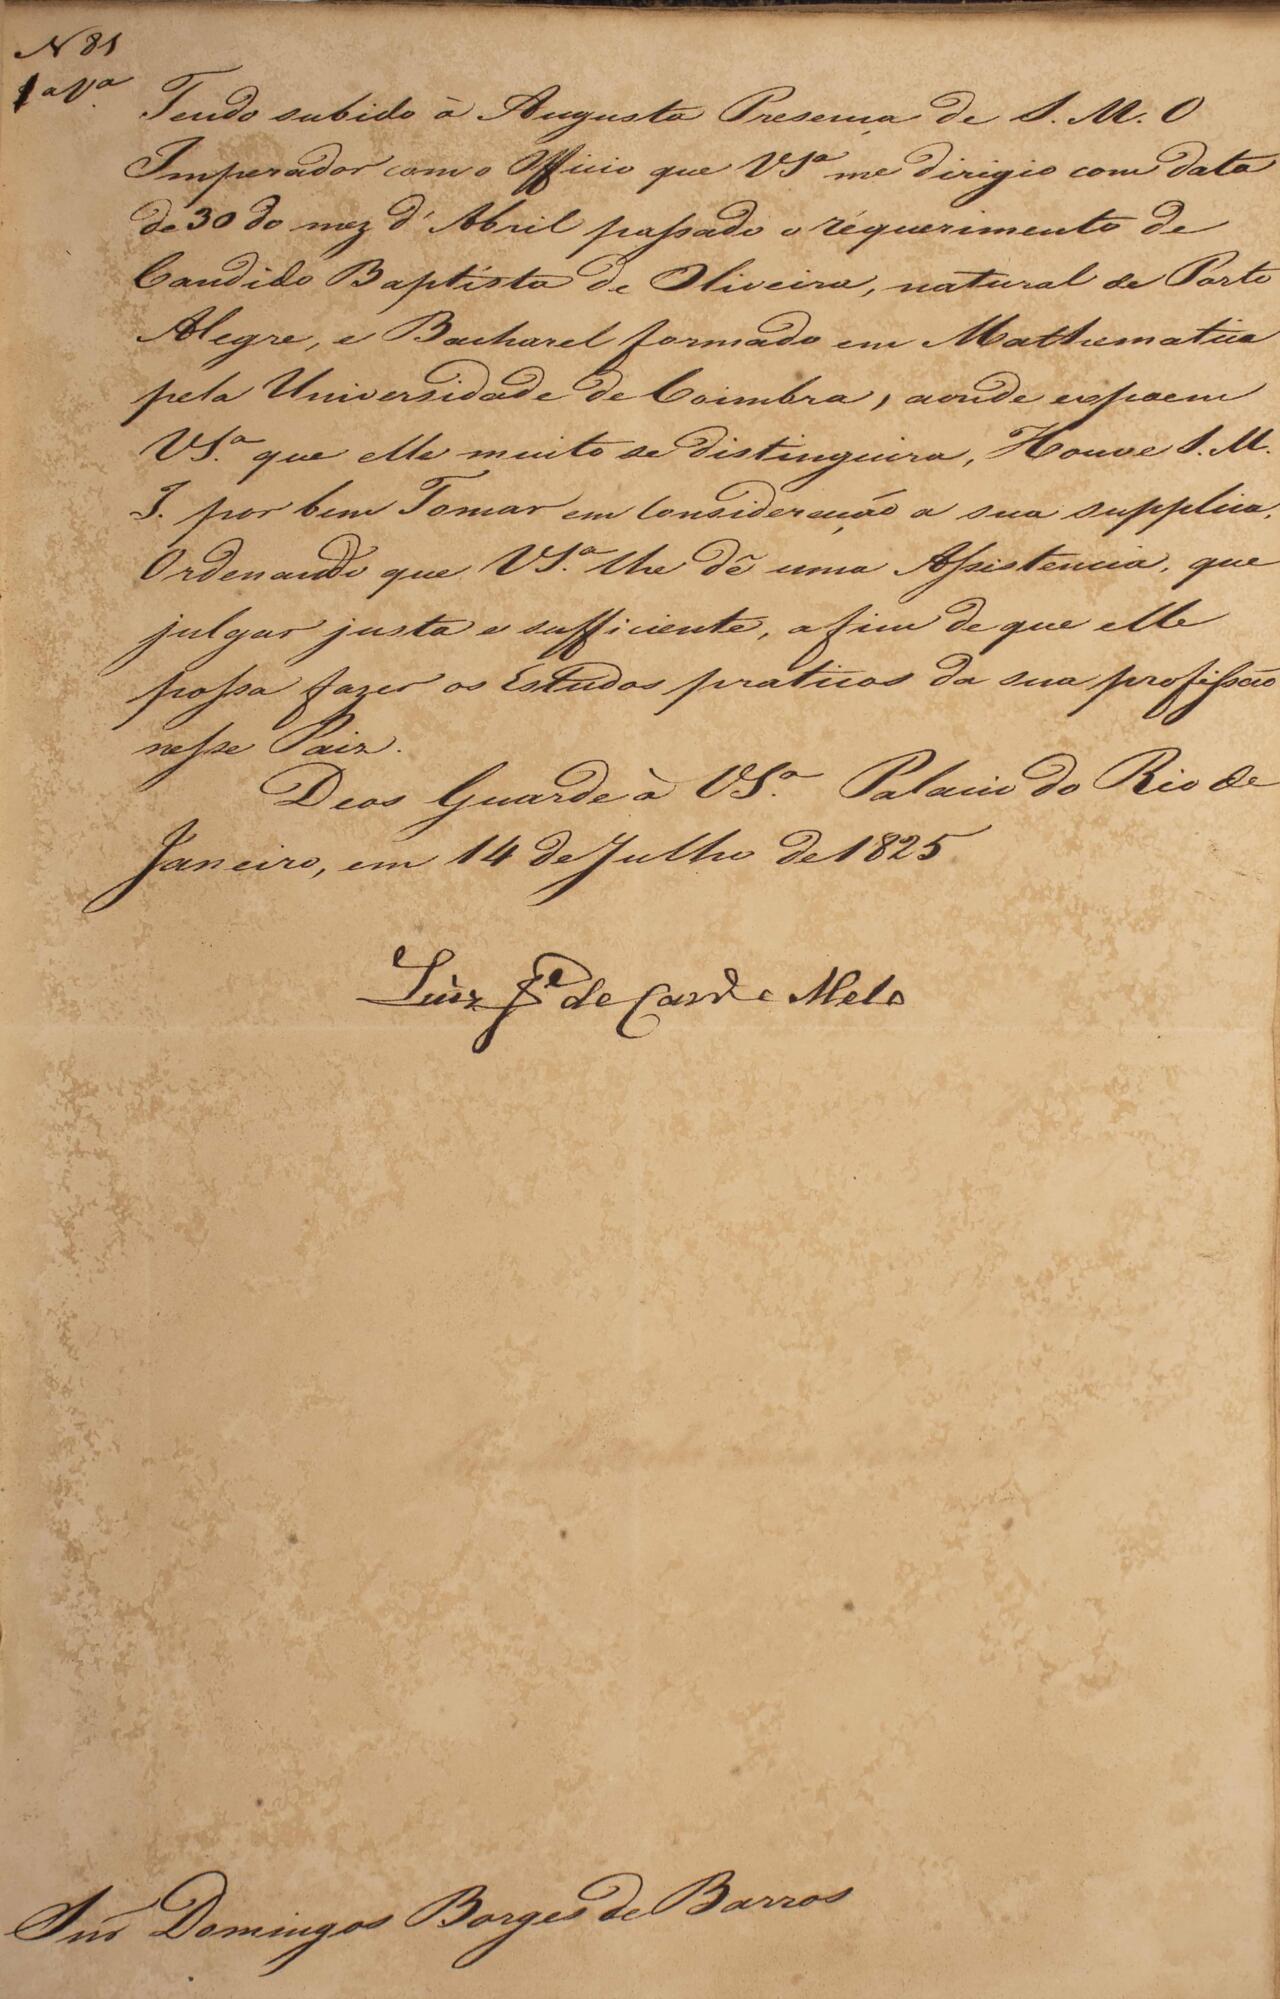 N 81
1ª Vª
Tendo subido à Augusta Presença de S. M. O
Imperador com o Officio que VSª me dirigio com data
de 30 do mez d'Abril passado o requerimento de
Candido Baptista de Oliveira, natural de Porto
Alegre, e Bacharel formado em Mathematica
pela Universidade de Coimbra, aonde expoem
VS.ª que elle muito se distinguira, Houve S. M.
I. por bem Tomar em Consideração a sua supplica,
Ordenando que VS.ª lhe dê uma Assistencia, que
julgar justa e sufficiente, afim de que elle
possa fazer os Estudos praticos da sua profissão
nesse Paiz.
Deos Guarde à VS.ª Palacio do Rio de
Janeiro, em 14 de Julho de 1825
Luiz Jᵉ de Carvº e Melo
Snr Domingos Borges de Barros